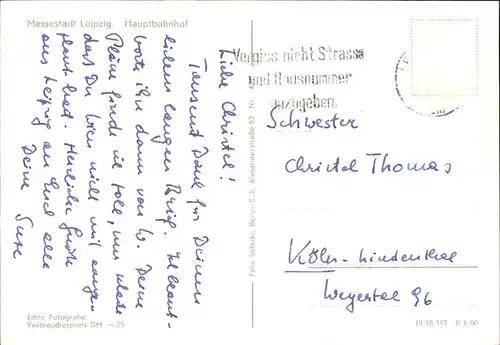 Messestadt Leipzig. Hauptbahnhof
Liebe Christel!
Tausend Dank für Deinen
lieben langen Brief. Ich beant-
worte ihn dann von W. Deine
Pläne find ich toll, nur schade
daß Du Wien nicht mit einge-
plant hast. Herzliche Grüße
aus Leipzig an Euch alle
Deine Suse
Echte Fotografie
Verbraucherpreis DM —.25
Felix Setecki, Berlin C 2, Alexanderstraße 63 Nr.
Vergiss nicht Strasse
und Hausnummer
anzugeben.
Schwester
Christel Thomas
Köln-Lindenthal
Weyertal 96
III/18/197 B 6/60